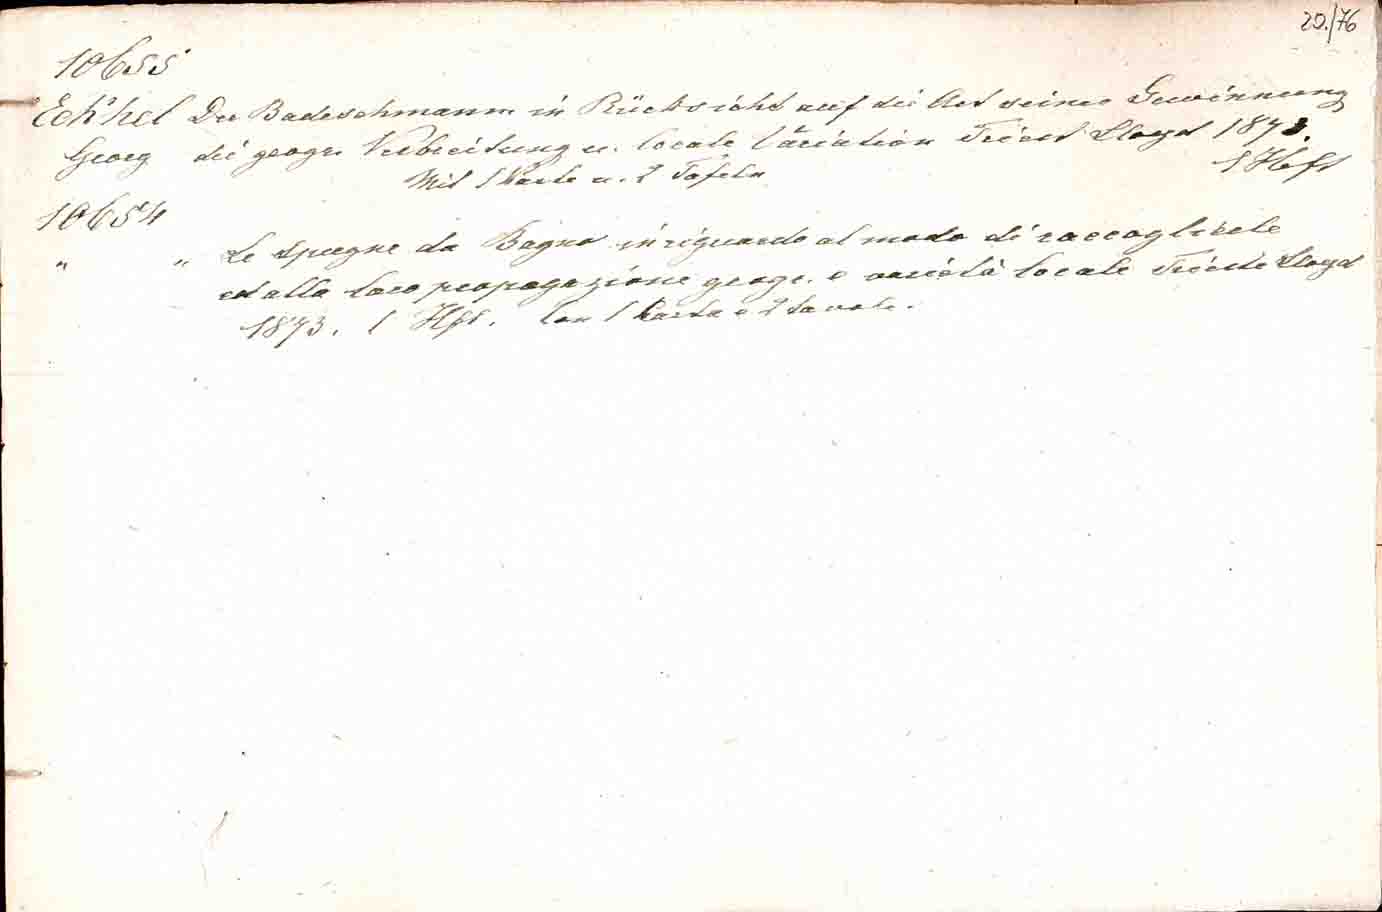 20./76
10655
Eckhel Der Badeschwamm in Rücksicht auf die Art seiner Gewinnung
Georg die geogr. Verbreitung u. locale Variation Triest Lloyd 1873.
Mit 1 Karte u. 2 Tafeln 1 Hft
10654
" " Le spugne da Bagno in riguardo al modo di raccoglierle
ed alla loro propagazione geogr. e varietà locale Trieste Lloyd
1873. 1 Hft. Con 1 Carta e 2 tavole.